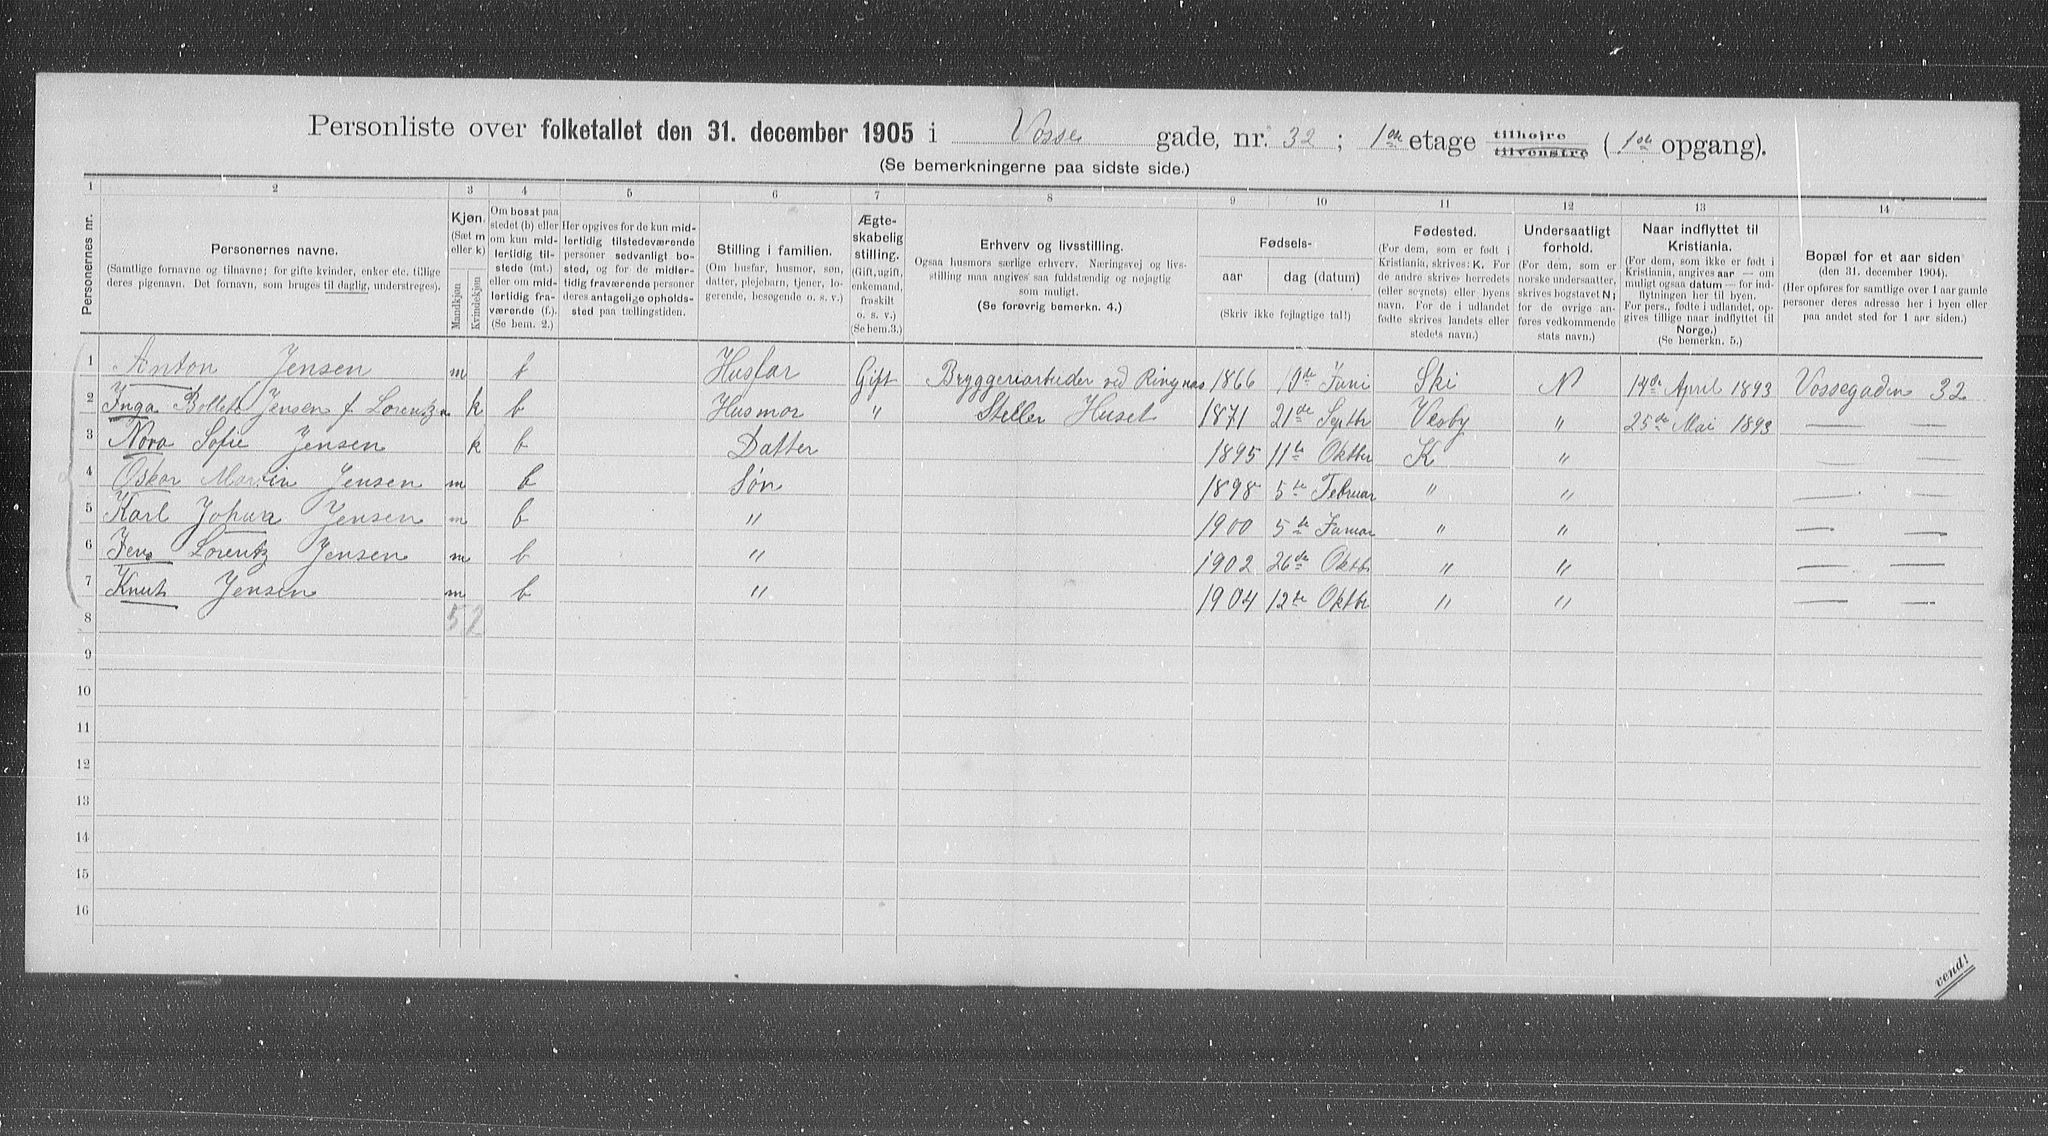 Personliste over folketallet den 31. december 1905 i Vosse gade, nr. 32 ; 1ste etage tilhøjre tilvenstre ( 1ste opgang).
(Se bemerkningerne paa sidste side.)
1 2 3 4 5 6 7 8 9 10 11 12 13 14
Personernes nr.
Personernes navne.
(Samtlige fornavne og tilnavne; for gifte kvinder, enker etc. tillige
deres pigenavn. Det fornavn, som bruges til daglig, understreges).
Kjøn.
(Sæt m
eller k)
Mandkjøn
Kvindekjøn
Om bosat paa
stedet (b) eller
om kun mid-
lertidig til-
stede (mt.)
eller om mid-
lertidig fra-
værende (f.).
(Se bem. 2.)
Her opgives for de kun mid-
lertidig tilstedeværende
personer sedvanligt bo-
sted, og for de midler-
tidig fraværende personer
deres antagelige opholds-
sted paa tællingstiden.
Stilling i familien.
(Om husfar, husmor, søn,
datter, plejebarn, tjener, lo-
gerende, besøgende o. s. v.)
Ægte-
skabelig
stilling.
(Gift, ugift,
enkemand,
fraskilt
o. s. v.)
(Se bem.3.)
Erhverv og livsstilling.
Ogsaa husmors særlige erhverv. Næringsvej og livs-
stilling maa angives saa fuldstændig og nøjagtig
som muligt.
(Se forøvrig bemerkn. 4.)
Fødsels-
aar
dag (datum)
(Skriv ikke fejlagtige tal!)
Fødested.
(For dem, som er født i
Kristiania, skrives: K. For
de andre skrives herredets
(eller sognets) eller byens
navn. For de i udlandet
fødte skrives landets eller
stedets navn.)
Undersaatligt
forhold.
(For dem, som er
norske undersaatter,
skrives bogstavet N;
for de øvrige an-
føres vedkommende
stats navn.)
Naar indflyttet til
Kristiania.
(For dem, som ikke er født i
Kristiania, angives aar — om
muligt ogsaa datum — for ind-
flytningen her til byen.
For pers., fødte i udlandet, op-
gives tillige naar indflyttet til
Norge.)
(Se bemerkn. 5.)
Bopæl for et aar siden
(den 31. december 1904).
(Her opføres for samtlige over 1 aar gamle
personer deres adresse her i byen eller
paa andet sted for 1 aar siden.)
1 Anton Jensen m b Husfar Gift Bryggeriarbeider ved Ringnæs 1866 Juni Ski N April 1893 Vossegaden 32
2 Inga Jensen f. Lorentzen k b Husmor " Steller Huset 1871 21de Septbr Vesby " 25de Mai 1893 — —
3 Nora Sofie Jensen k b Datter 1895 11te Oktbr K " — —
4 Oskar Martin Jensen m b Søn 1898 5te Februar " " — —
5 Karl Johan Jensen m b " 1900 5te Januar " " — —
6 Jens Lorentz Jensen m b " 1902 26de Oktb " " — —
7 Knut Jensen m b " 1904 12te Oktbr " " — —
8 5 2
9
10
11
12
13
14
15
16
vend!